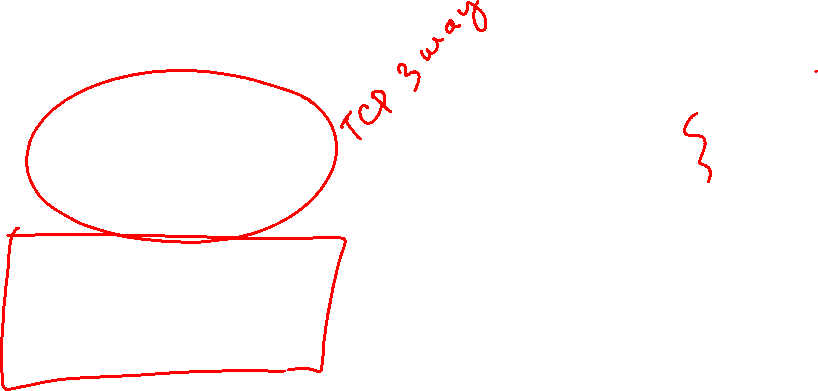 TCP 3 way